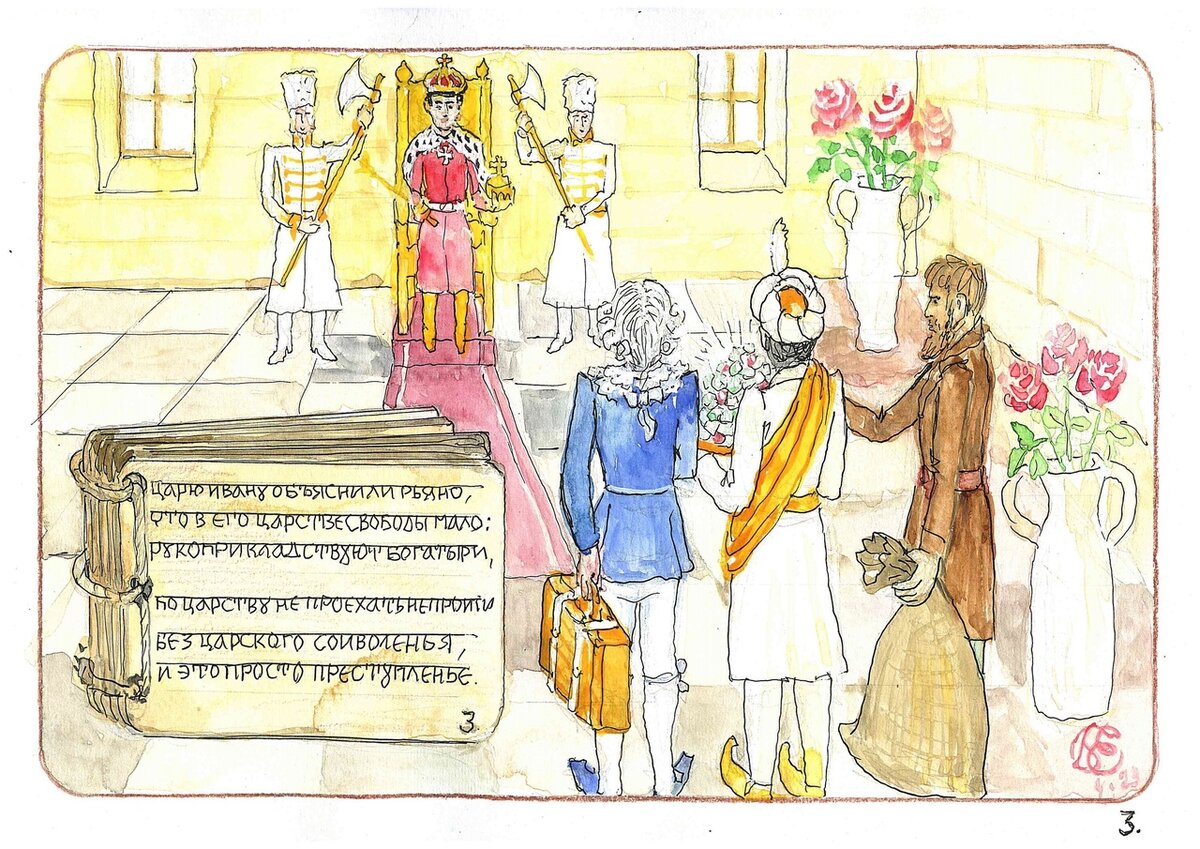 ЦАРЮ ИВАНУ ОБЪЯСНИЛИ РЬЯНО,
ЧТО В ЕГО ЦАРСТВЕ СВОБОДЫ МАЛО:
РУКОПРИКЛАДСТВУЮТ БОГАТЫРИ,
ПО ЦАРСТВУ НЕ ПРОЕХАТЬ НЕ ПРОЙТИ
БЕЗ ЦАРСКОГО СОИВОЛЕНЬЯ,
И ЭТО ПРОСТО ПРЕСТУПЛЕНЬЕ.
3.
3.